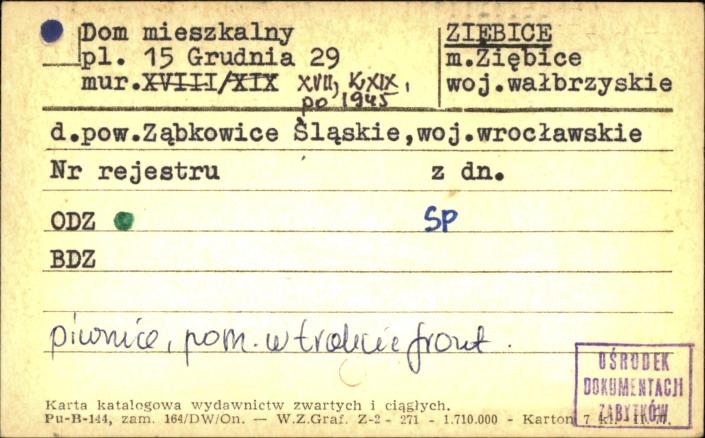 Dom mieszkalny
pl. 15 Grudnia 29
mur. XVIII/XIX XVII, K.XIX,
po 1945
ZIĘBICE
m.Ziębice
woj.wałbrzyskie
d.pow.Ząbkowice Śląskie,woj.wrocławskie
Nr rejestru z dn.
ODZ SP
BDZ
piwnice, pom. w trakcie front.
OŚRODEK
DOKUMENTACJI
ZABYTKÓW
Karta katalogowa wydawnictw zwartych i ciągłych.
Pu-B-144, zam. 164/DW/On. — W.Z.Graf. Z-2 - 271 - 1.710.000 - Karton 7 kl.